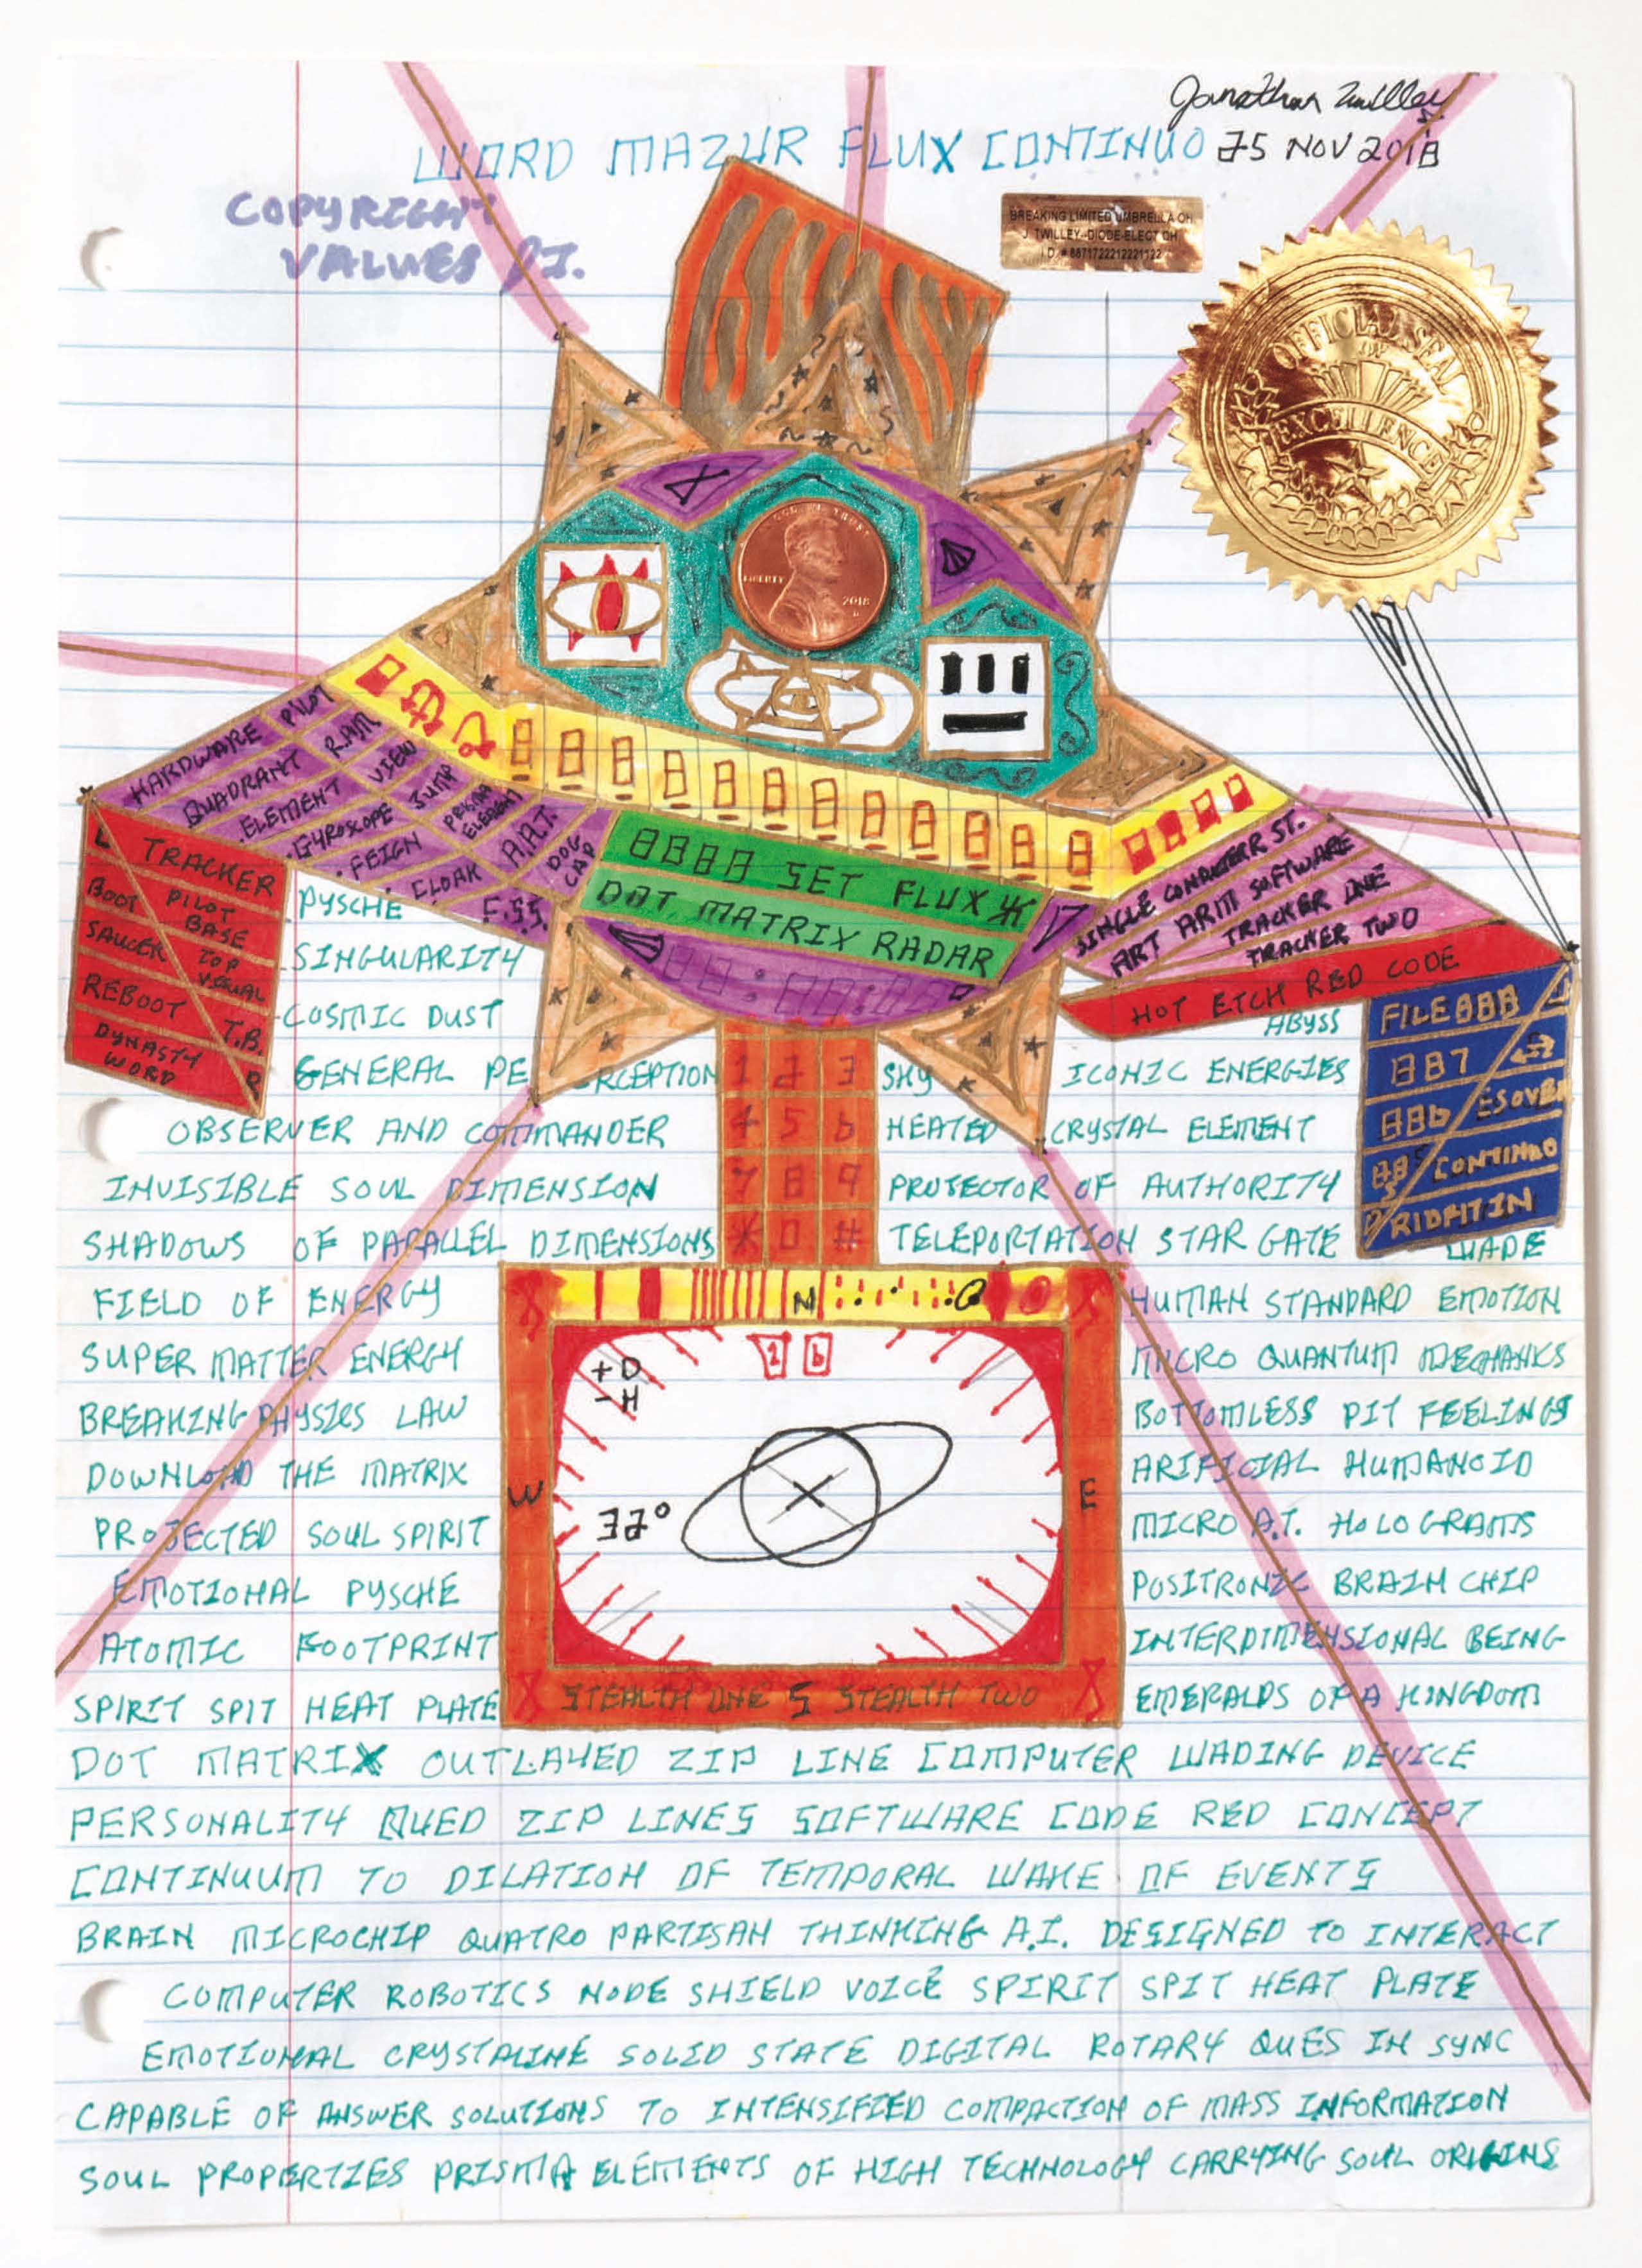 Jonathan Twilley
WORD MAZUR FLUX CONTINUO 25 NOV 2018
COPYRIGHT
VALUES
BREAKING LIMITED UMBRELLA OH
J. TWILLEY--DIODE-ELECT OH
I.D. # 8871722212221122
OFFICIAL SEAL
OF
EXCELLENCE
LIBERTY
2018
D
HARDWARE PILOT
QUADRANT RAM
ELEMENT VIEW
GYROSCOPE JUMP
FEIGN PRISMA ELEMENT
CLOAK A.A.T.
F.S.S. DOG CAP
8888 SET FLUX
DOT MATRIX RADAR
88:88:88
SINGLE COMPUTERR ST.
ART ARM SOFTWARE
TRACKER ONE
TRACKER TWO
HOT ETCH RED CODE
L TRACKER
BOOT PILOT BASE
SAUCER TOP VISUAL
REBOOT T.B.
DYNASTY WORD R
FILE888 L
887
886 ESOVER
885 CONTINUO
RIDFITIN
PYSCHE
SINGULARITY
COSMIC DUST ABYSS
GENERAL PE RCEPTION 1 2 3 SKY ICONIC ENERGIES
OBSERVER AND COMMANDER 4 5 6 HEATED CRYSTAL ELEMENT
INVISIBLE SOUL DIMENSION 7 8 9 PROTECTOR OF AUTHORITY
SHADOWS OF PARALLEL DIMENSIONS * 0 # TELEPORTATION STAR GATE WADE
FIELD OF ENERGY N HUMAN STANDARD EMOTION
SUPER MATTER ENERGY +D 1 6 MICRO QUANTUM MECHANKS
-H
BREAKING PHYSICS LAW BOTTOMLESS PIT FEELINGS
DOWNLOAD THE MATRIX W E ARIFICIAL HUMANOID
PROJECTED SOUL SPIRIT 32° MICRO A.I. HOLOGRAMS
EMOTIONAL PYSCHE POSITRONIC BRAIN CHIP
ATOMIC FOOTPRINT INTERDIMENSIONAL BEING
SPIRIT SPIT HEAT PLATE STEALTH ONE S STEALTH TWO EMERALDS OF A KINGDOM
DOT MATRIX OUTLAYED ZIP LINE COMPUTER WADING DEVICE
PERSONALITY QUED ZIP LINES SOFTWARE CODE RED CONCEPT
CONTINUUM TO DILATION OF TEMPORAL WAKE OF EVENTS
BRAIN MICROCHIP QUATRO PARTISAN THINKING A.I. DESIGNED TO INTERACT
COMPUTER ROBOTICS NODE SHIELD VOICE SPIRIT SPIT HEAT PLATE
EMOTIONAL CRYSTALINE SOLID STATE DIGITAL ROTARY QUES IN SYNC
CAPABLE OF ANSWER SOLUTIONS TO INTENSIFIED COMPACTION OF MASS INFORMATION
SOUL PROPERTIES PRISMA ELEMENTS OF HIGH TECHNOLOGY CARRYING SOUL ORIGINS